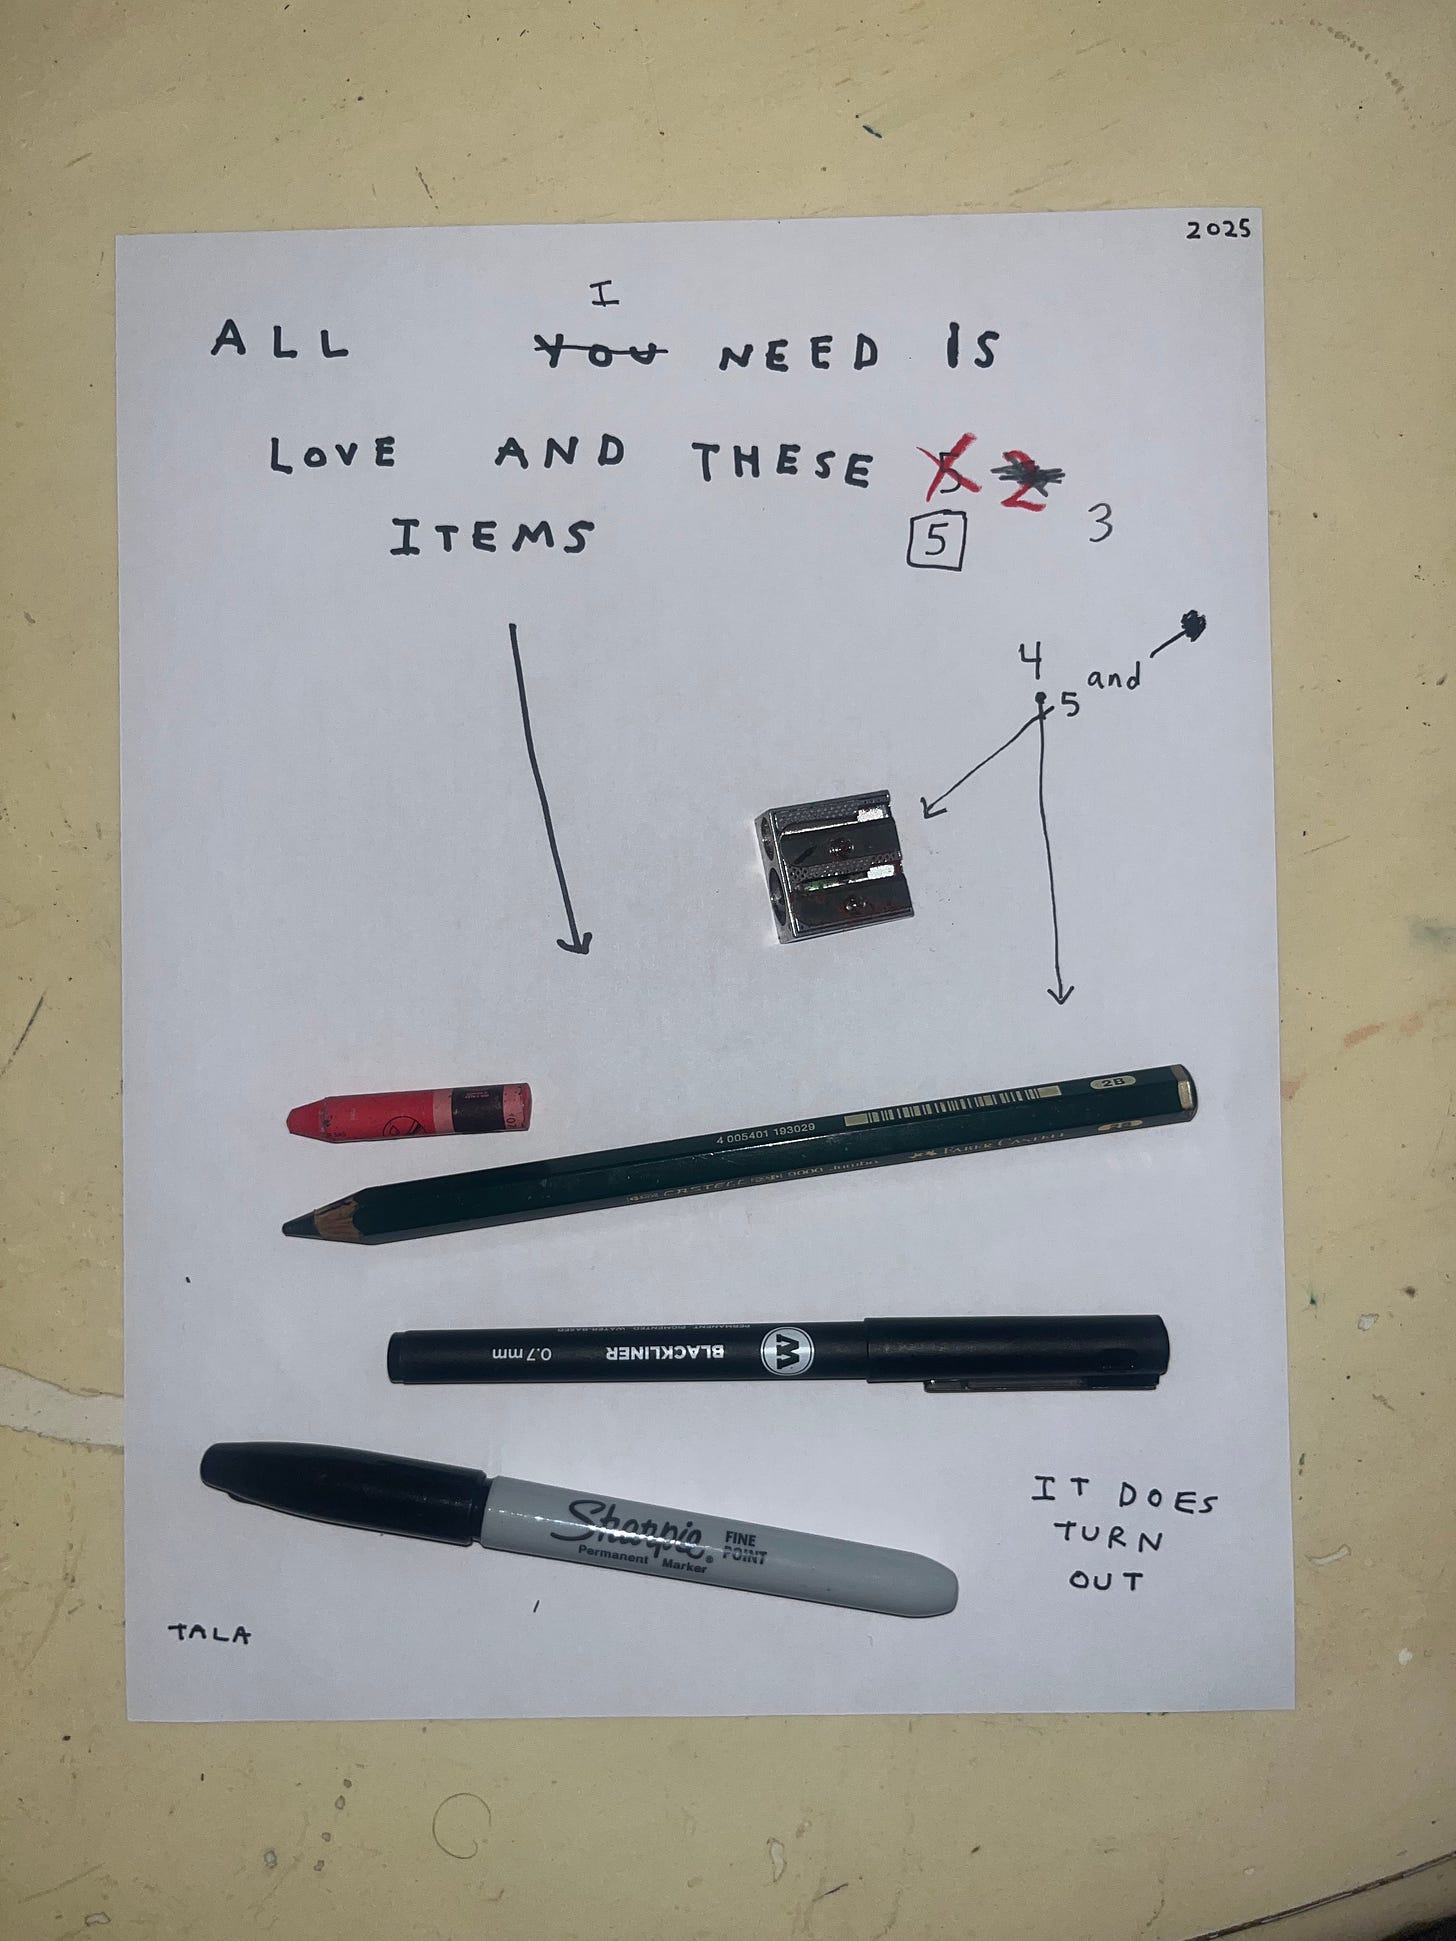 2025
I
ALL YOU NEED IS
LOVE AND THESE 5 2
ITEMS 5 3
4
5 and
2B
4 005401 193029
CASTELL 9000 Jumbo FABER-CASTELL 2B
BLACKLINER 0.7 mm
PERMANENT PIGMENTED WATER-BASED
Sharpie® FINE POINT
Permanent Marker
IT DOES
TURN
OUT
TALA